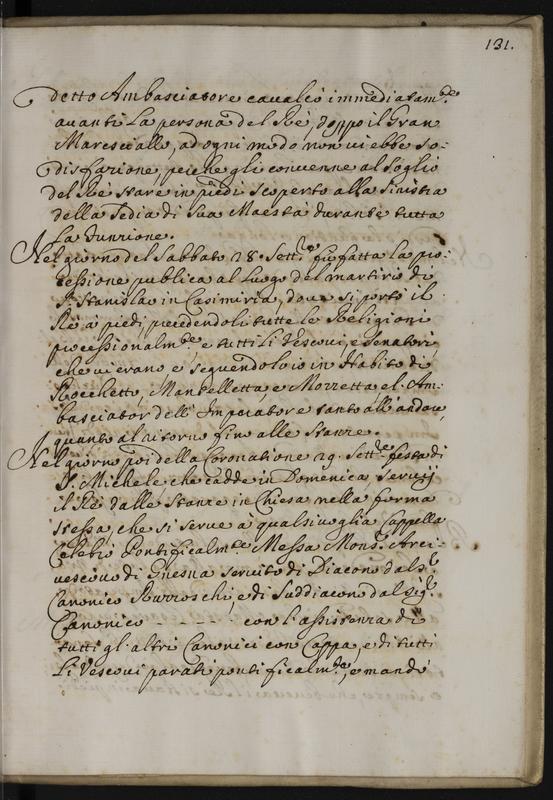 131.
detto Ambasciatore cavalcò immediatam.te
avanti la persona del Rè, doppo il Gran
Maresciallo, ad ogni modo non vi ebbe so-
disfazione perche gli convenne al soglio
del Rè stare in piedi scoperto alla sinistra
della sedia di Sua Maestà durante tutta
la funzione.
Nel giorno del Sabbato 28. Sett.re fù fatta la pro-
cessione publica al luogo del martirio di
S. Stanislao in Casimiria, dove si portò il
Rè à piedi precedendoli tutte le Religioni
processionalm.te e tutti li Vescovi, e Senatori,
che vi erano, e seguendolo io in Habito di
Rocchetto, Mantelletta, e Mozzetta, el' Am-
basciator dell' Imperatore tanto all'andare,
quanto al ritorno fino alle stanze.
Nel giorno poi della Coronatione 29. Sett.re festa di
S. Michele, che cadde in Domenica, servij
il Rè dalle stanze in Chiesa nella forma
stessa, che si serve à qualsivoglia Cappella
Celebrò Pontificalm.te Messa Mons.r Arci-
vescovo di Gnesna servito di Diacono dal s.r
Canonico e di Suddiacono dal Sig.r
Canonico - - - - - con l'assistenza di
tutti gl'altri Canonici con Cappa, e di tutti
li Vescovi parati pontificalm.te, e mandò